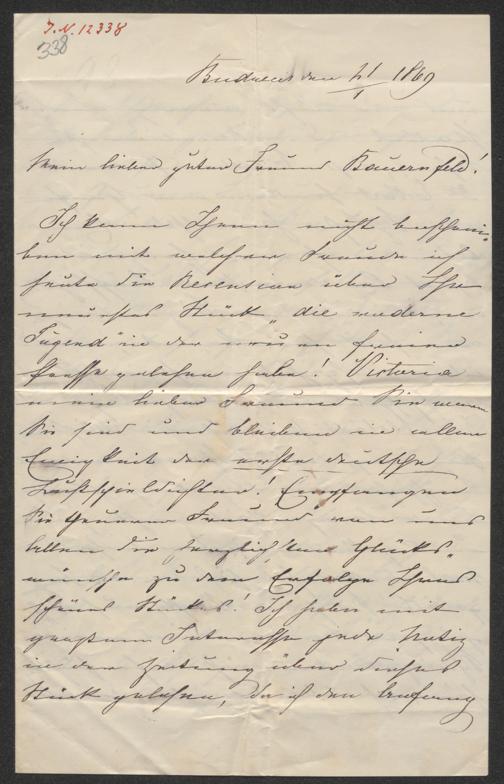 I.N. 12338
338
Budweis den 21/1 1869
Mein lieber guter Freund Bauernfeld!
Ich kann Ihnen nicht beschrei-
ben mit welcher Freude ich
heute die Recension über Ihr
neuestes Stück „die moderne
Jugend" in der neuen freien
Presse gelesen habe! Victoria
mein lieber Freund Sie waren
Sie sind und bleiben in alle
Ewigkeit der erste deutsche
Lustspieldichter! Empfangen
Sie theurer Freund von uns
allen die herzlichsten Glücks-
wünsche zu dem Erfolge Ihres
schönen Stückes! Ich habe mit
großem Interesse jede Notiz
in der Zeitung über dieses
Stück gelesen, da ich den Anfang